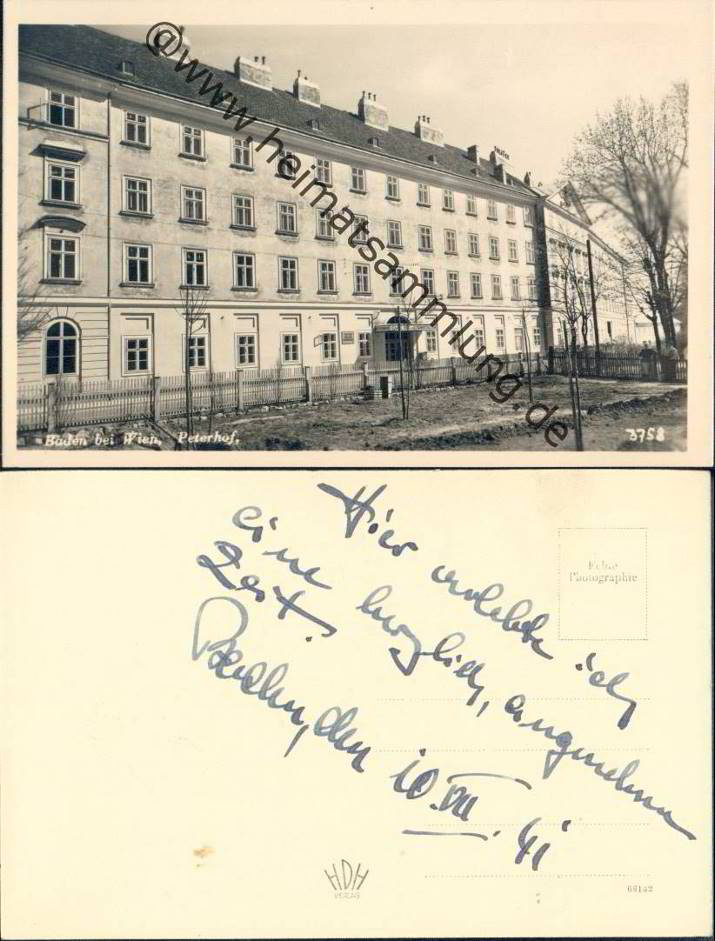 @www.heimatsammlung.de
Baden bei Wien. Peterhof.
3758
Echte
Photographie
Hier erlebte ich
eine herzlich, angenehme
Zeit.
Baden, den 10.VII.41
HDH
VERLAG
66142